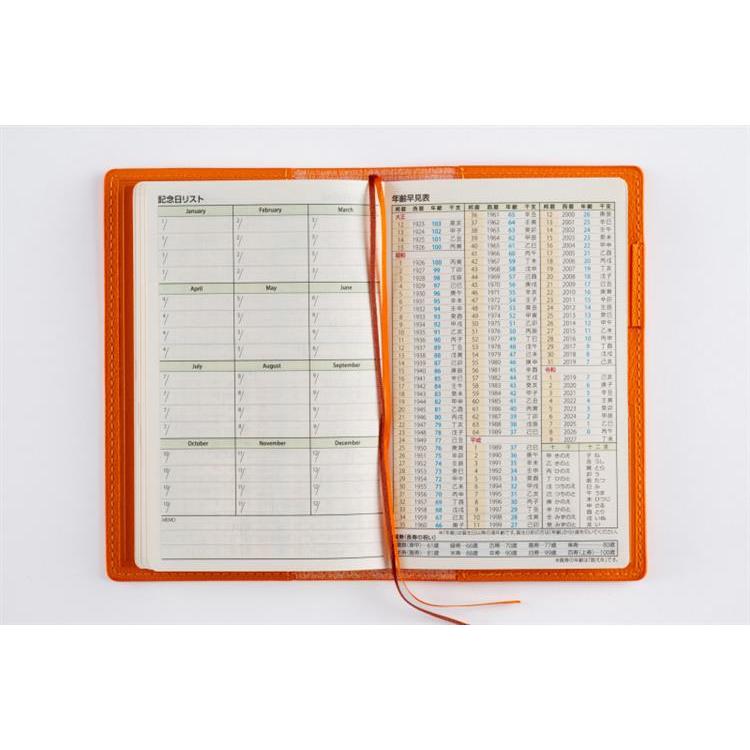 記念日リスト
January February March
1/ 2/ 3/
1/ 2/ 3/
1/ 2/ 3/
1/ 2/ 3/
April May June
4/ 5/ 6/
4/ 5/ 6/
4/ 5/ 6/
4/ 5/ 6/
July August September
7/ 8/ 9/
7/ 8/ 9/
7/ 8/ 9/
7/ 8/ 9/
October November December
10/ 11/ 12/
10/ 11/ 12/
10/ 11/ 12/
10/ 11/ 12/
MEMO
年齢早見表
邦暦 西暦 年齢 干支
大正
12 1923 103 癸亥
13 1924 102 甲子
14 1925 101 乙丑
15 1926 100 丙寅
昭和
1 1926 100 丙寅
2 1927 99 丁卯
3 1928 98 戊辰
4 1929 97 己巳
5 1930 96 庚午
6 1931 95 辛未
7 1932 94 壬申
8 1933 93 癸酉
9 1934 92 甲戌
10 1935 91 乙亥
11 1936 90 丙子
12 1937 89 丁丑
13 1938 88 戊寅
14 1939 87 己卯
15 1940 86 庚辰
16 1941 85 辛巳
17 1942 84 壬午
18 1943 83 癸未
19 1944 82 甲申
20 1945 81 乙酉
21 1946 80 丙戌
22 1947 79 丁亥
23 1948 78 戊子
24 1949 77 己丑
25 1950 76 庚寅
26 1951 75 辛卯
27 1952 74 壬辰
28 1953 73 癸巳
29 1954 72 甲午
30 1955 71 乙未
31 1956 70 丙申
32 1957 69 丁酉
33 1958 68 戊戌
34 1959 67 己亥
35 1960 66 庚子
邦暦 西暦 年齢 干支
36 1961 65 辛丑
37 1962 64 壬寅
38 1963 63 癸卯
39 1964 62 甲辰
40 1965 61 乙巳
41 1966 60 丙午
42 1967 59 丁未
43 1968 58 戊申
44 1969 57 己酉
45 1970 56 庚戌
46 1971 55 辛亥
47 1972 54 壬子
48 1973 53 癸丑
49 1974 52 甲寅
50 1975 51 乙卯
51 1976 50 丙辰
52 1977 49 丁巳
53 1978 48 戊午
54 1979 47 己未
55 1980 46 庚申
56 1981 45 辛酉
57 1982 44 壬戌
58 1983 43 癸亥
59 1984 42 甲子
60 1985 41 乙丑
61 1986 40 丙寅
62 1987 39 丁卯
63 1988 38 戊辰
64 1989 37 己巳
平成
1 1989 37 己巳
2 1990 36 庚午
3 1991 35 辛未
4 1992 34 壬申
5 1993 33 癸酉
6 1994 32 甲戌
7 1995 31 乙亥
8 1996 30 丙子
9 1997 29 丁丑
10 1998 28 戊寅
11 1999 27 己卯
邦暦 西暦 年齢 干支
12 2000 26 庚辰
13 2001 25 辛巳
14 2002 24 壬午
15 2003 23 癸未
16 2004 22 甲申
17 2005 21 乙酉
18 2006 20 丙戌
19 2007 19 丁亥
20 2008 18 戊子
21 2009 17 己丑
22 2010 16 庚寅
23 2011 15 辛卯
24 2012 14 壬辰
25 2013 13 癸巳
26 2014 12 甲午
27 2015 11 乙未
28 2016 10 丙申
29 2017 9 丁酉
30 2018 8 戊戌
31 2019 7 己亥
令和
1 2019 7 己亥
2 2020 6 庚子
3 2021 5 辛丑
4 2022 4 壬寅
5 2023 3 癸卯
6 2024 2 甲辰
7 2025 1 乙巳
8 2026 0 丙午
9 2027 丁未
十干 十二支
甲 きのえ 子 ね
乙 きのと 丑 うし
丙 ひのえ 寅 とら
丁 ひのと 卯 う
戊 つちのえ 辰 たつ
己 つちのと 巳 み
庚 かのえ 午 うま
辛 かのと 未 ひつじ
壬 みずのえ 申 さる
癸 みずのと 酉 とり
戌 いぬ
亥 い
(長寿の祝い)
(還甲)-61歳 緑寿-66歳 古希-70歳 喜寿-77歳 傘寿-80歳
-81歳 米寿-88歳 卒寿-90歳 白寿-99歳 百寿(上寿)-100歳
※長寿の年齢は「数え年」です。